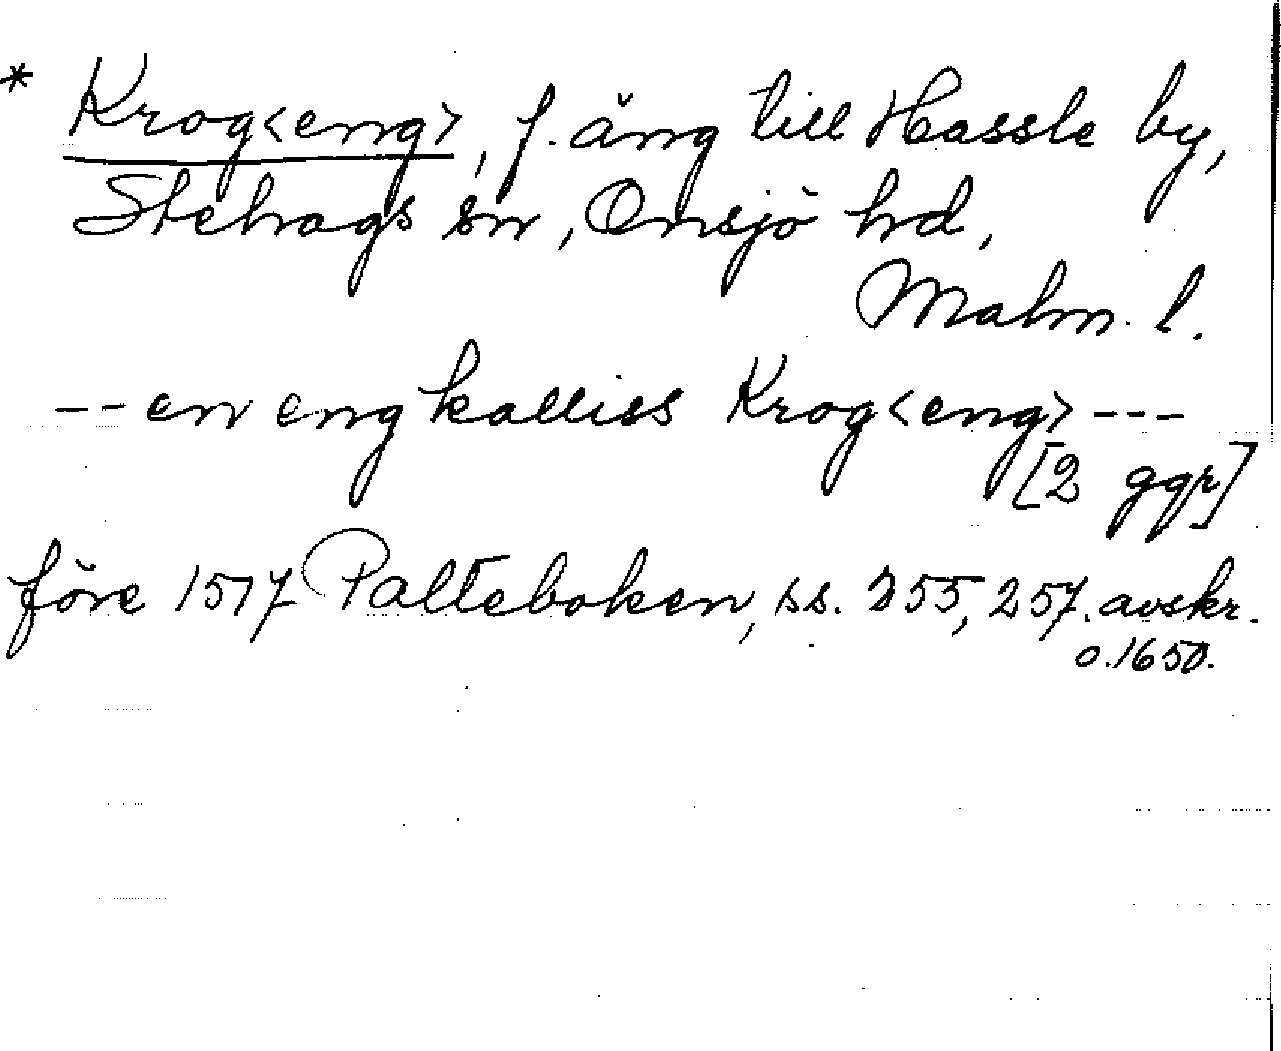 * Krog<eng>, f. äng till Hassle by,
Stehags sn, Onsjö hd,
Malm. l.
-- en eng kalliss Krog<eng> ---
[2 ggr]
före 1517 Palteboken, ss. 255, 257. avskr.
o. 1650.